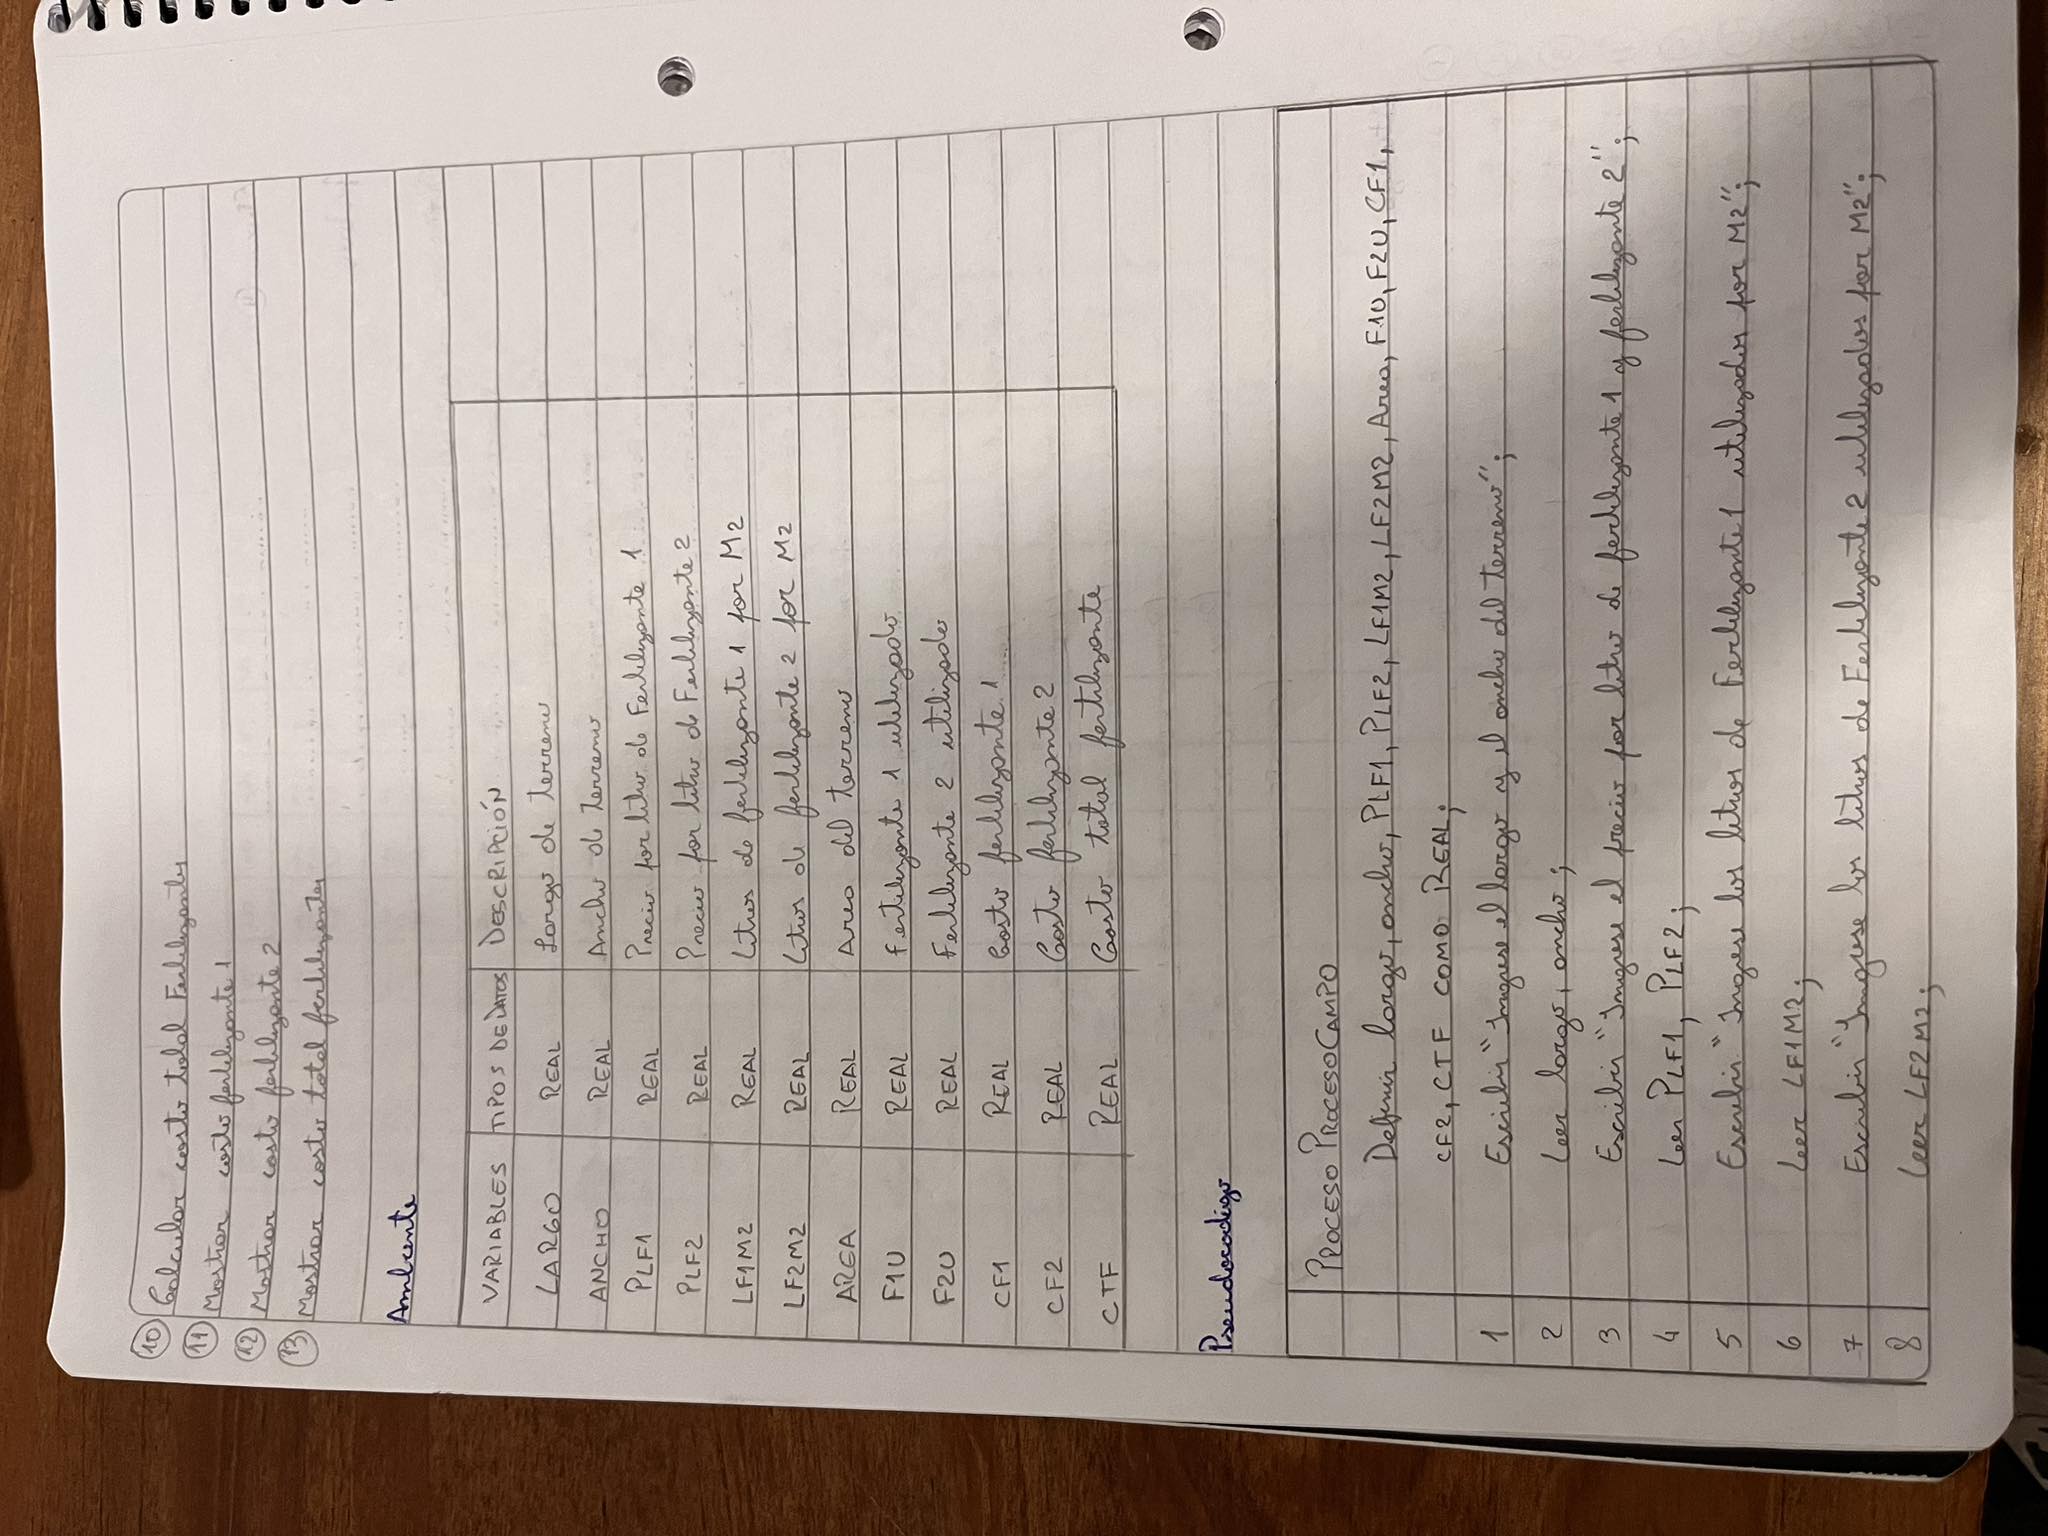 10 Calcular costo total Fertilizantes
11 Mostrar costo fertilizante 1
12 Mostrar costo fertilizante 2
13 Mostrar costo total fertilizantes
Ambiente
VARIABLES TIPOS DE DATOS DESCRIPCIÓN
LARGO REAL Largo de terreno
ANCHO REAL Ancho de terreno
PLF1 REAL Precio por litro de Fertilizante 1
PLF2 REAL Precio por litro de Fertilizante 2
LF1M2 REAL Litros de fertilizante 1 por M2
LF2M2 REAL Litros de fertilizante 2 por M2
AREA REAL Area del terreno
F1U REAL Fertilizante 1 utilizado
F2U REAL Fertilizante 2 utilizado
CF1 REAL Costo fertilizante 1
CF2 REAL Costo fertilizante 2
CTF REAL Costo total fertilizante
Pseudocodigo
PROCESO PROCESOCAMPO
Definir largo, ancho, PLF1, PLF2, LF1M2, LF2M2, Area, F1U, F2U, CF1,
CF2, CTF COMO REAL;
1 Escribir "Ingrese el largo y el ancho del terreno";
2 Leer largo, ancho;
3 Escribir "Ingrese el precio por litro de fertilizante 1 y fertilizante 2";
4 Leer PLF1, PLF2;
5 Escribir "Ingrese los litros de Fertilizante 1 utilizados por M2";
6 Leer LF1M2;
7 Escribir "Ingrese los litros de Fertilizante 2 utilizados por M2";
8 Leer LF2M2;